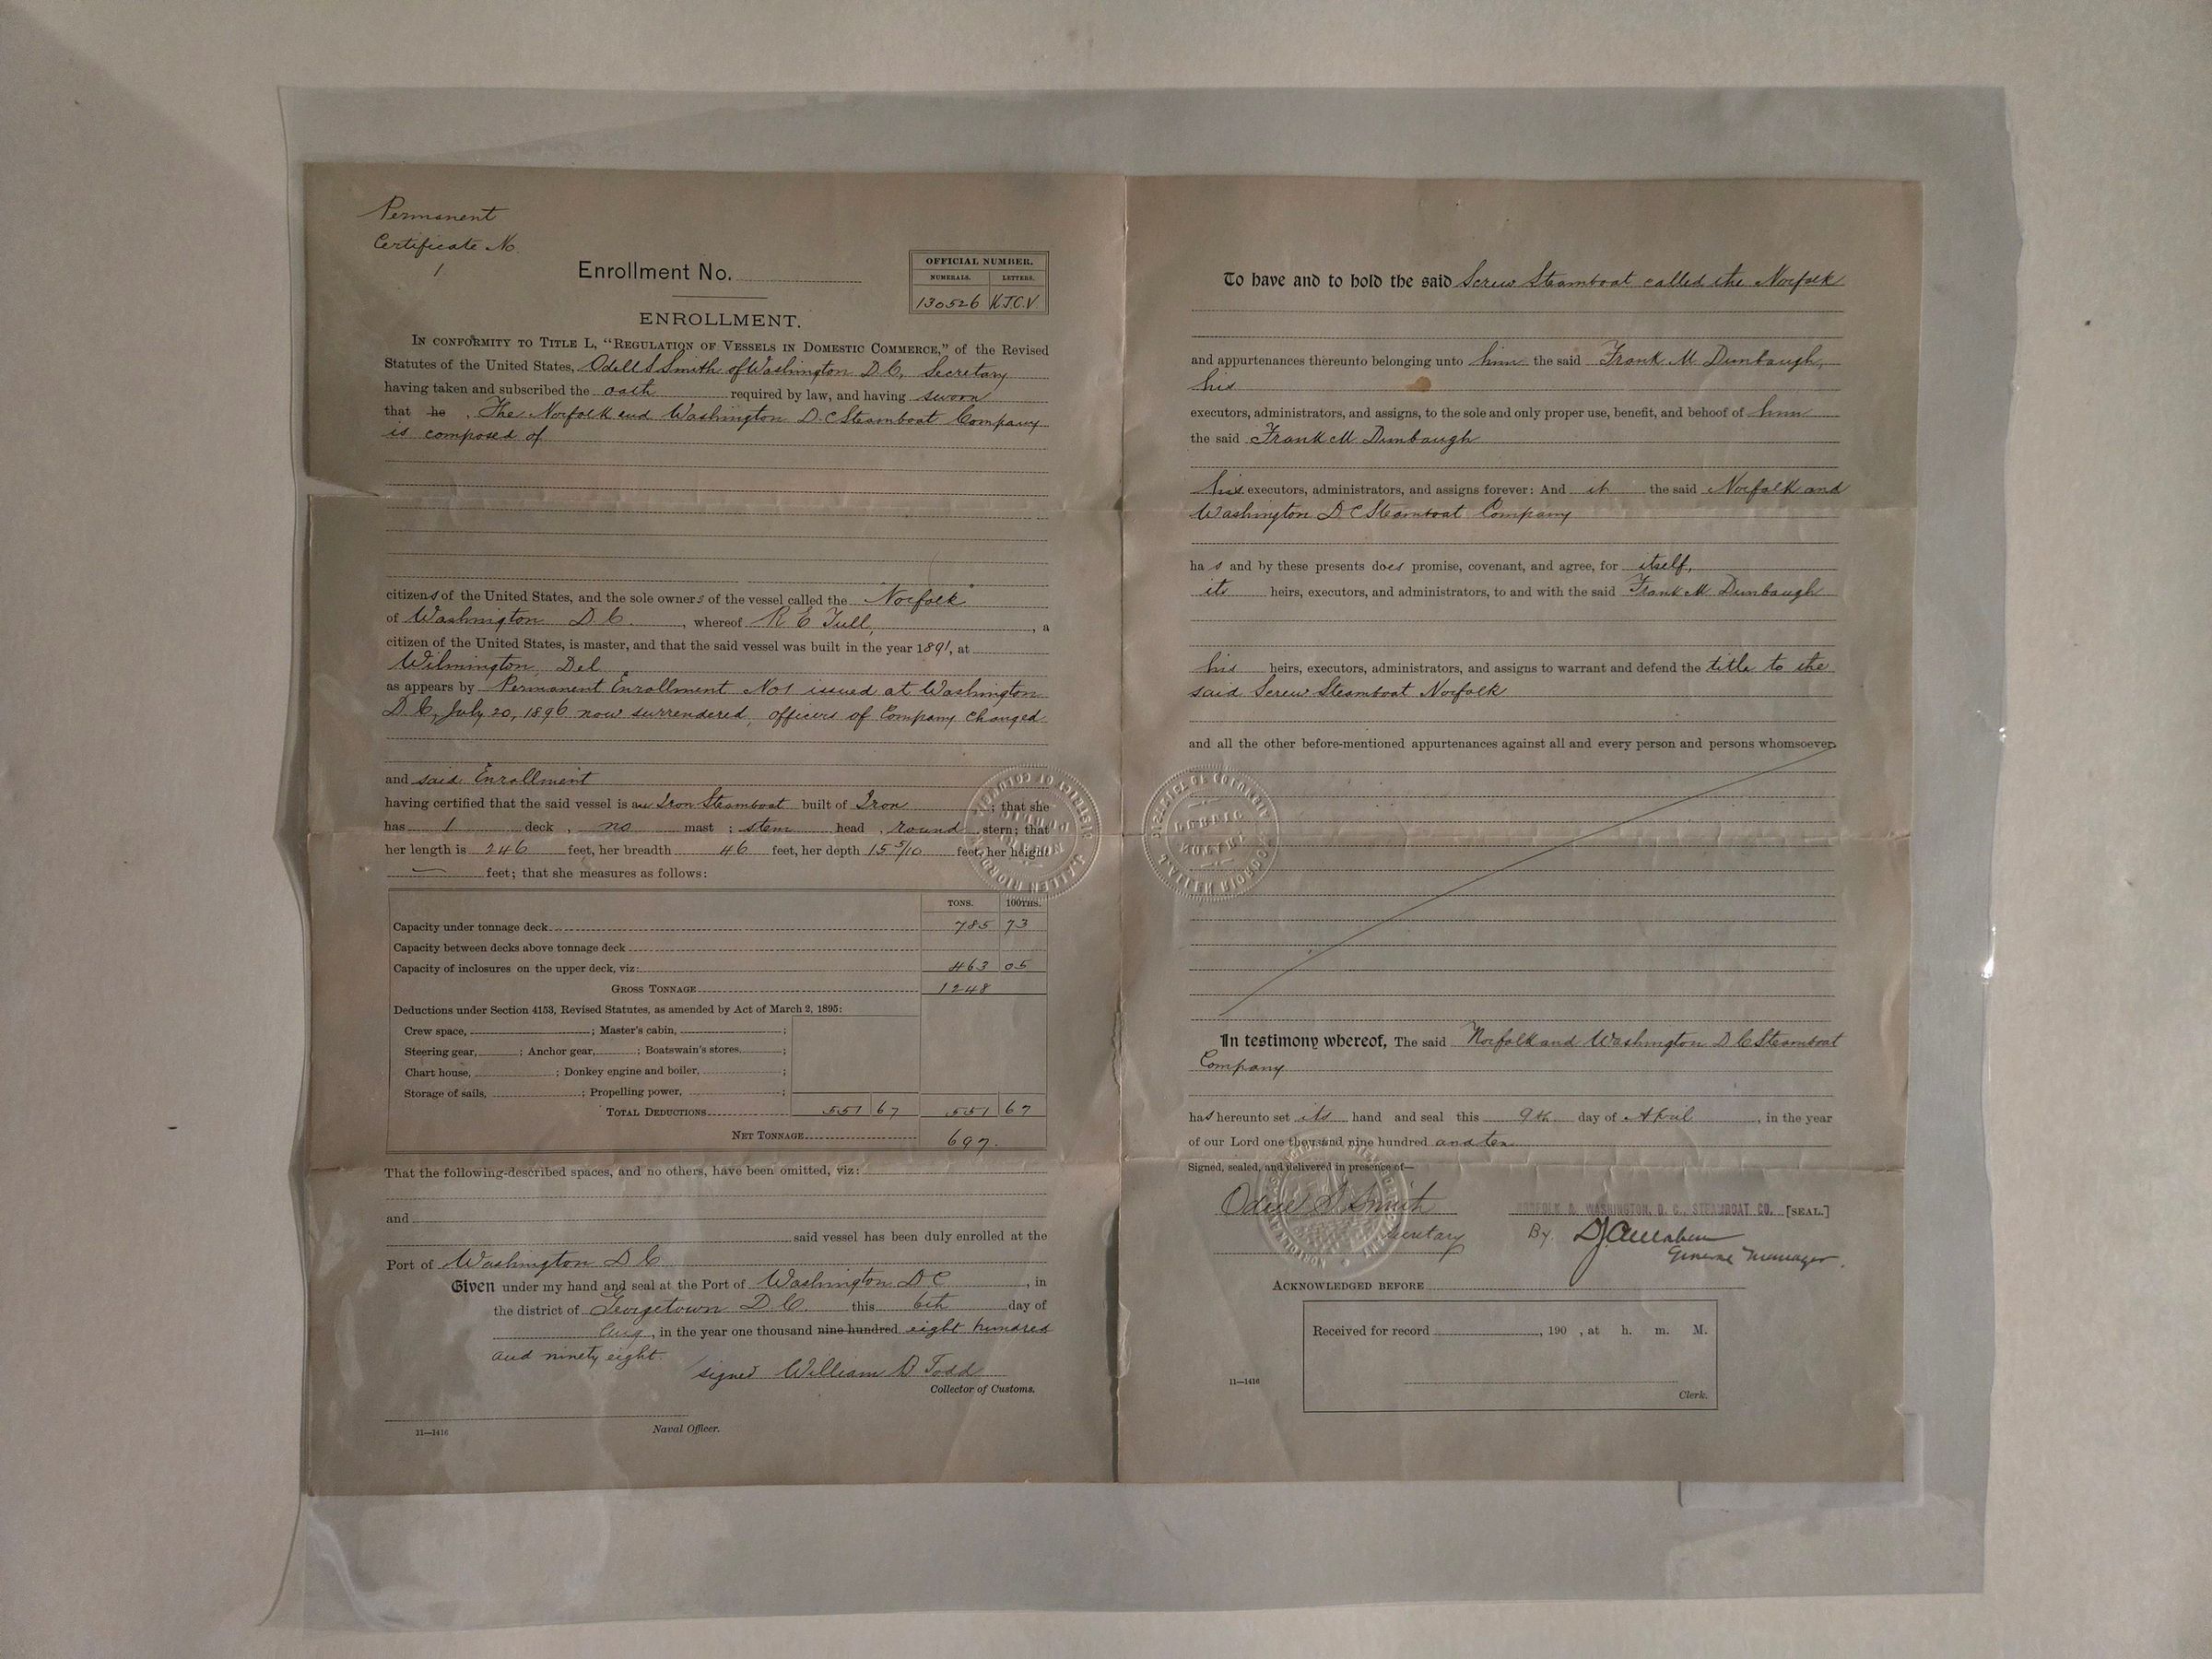 Permanent
Certificate No
1
Enrollment No.
OFFICIAL NUMBER.
NUMERALS. LETTERS.
130526 K.J.C.V
ENROLLMENT.
IN CONFORMITY TO TITLE L, “REGULATION OF VESSELS IN DOMESTIC COMMERCE,” of the Revised
Statutes of the United States, Odell S Smith of Washington D.C, Secretary
having taken and subscribed the oath required by law, and having sworn
that he , The Norfolk and Washington D.C Steamboat Company
is composed of
citizens of the United States, and the sole owners of the vessel called the Norfolk
of Washington D C. , whereof R E Tull, , a
citizen of the United States, is master, and that the said vessel was built in the year 1891, at
Wilmington, Del
as appears by Permanent Enrollment No 1 issued at Washington
D C, July 20, 1896 now surrendered, officers of Company changed
and said Enrollment
having certified that the said vessel is an Iron Steamboat built of Iron ; that she
has 1 deck , no mast ; stem head , round stern; that
her length is 246 feet, her breadth 46 feet, her depth 15 5/10 feet, her height
— feet; that she measures as follows:
TONS. 100THS.
Capacity under tonnage deck 785 73
Capacity between decks above tonnage deck
Capacity of inclosures on the upper deck, viz: 463 05
GROSS TONNAGE 1248
Deductions under Section 4153, Revised Statutes, as amended by Act of March 2, 1895:
Crew space, ; Master's cabin, ;
Steering gear, ; Anchor gear, ; Boatswain's stores, ;
Chart house, ; Donkey engine and boiler, ;
Storage of sails, ; Propelling power, ;
TOTAL DEDUCTIONS 551 67 551 67
NET TONNAGE 697.
That the following-described spaces, and no others, have been omitted, viz:
and
said vessel has been duly enrolled at the
Port of Washington D C
Given under my hand and seal at the Port of Washington D C , in
the district of Georgetown D.C. this 6th day of
Aug , in the year one thousand nine hundred eight hundred
and ninety eight.
signed William B Todd
Collector of Customs.
Naval Officer.
11—1416
To have and to hold the said Screw Steamboat called the Norfolk
and appurtenances thereunto belonging unto him the said Frank M Dunbaugh,
his
executors, administrators, and assigns, to the sole and only proper use, benefit, and behoof of him
the said Frank M Dunbaugh
his executors, administrators, and assigns forever: And it the said Norfolk and
Washington D C Steamboat Company
has and by these presents does promise, covenant, and agree, for itself,
its heirs, executors, and administrators, to and with the said Frank M Dunbaugh
his heirs, executors, administrators, and assigns to warrant and defend the title to the
said Screw Steamboat Norfolk
and all the other before-mentioned appurtenances against all and every person and persons whomsoever.
In testimony whereof, The said Norfolk and Washington D C Steamboat
Company
has hereunto set its hand and seal this 9th day of April , in the year
of our Lord one thousand nine hundred and ten
Signed, sealed, and delivered in presence of—
Odell S Smith
Secretary
NORFOLK & WASHINGTON, D. C., STEAMBOAT CO. [SEAL.]
By
General Manager.
ACKNOWLEDGED BEFORE
Received for record , 190 , at h. m. M.
Clerk.
11—1416